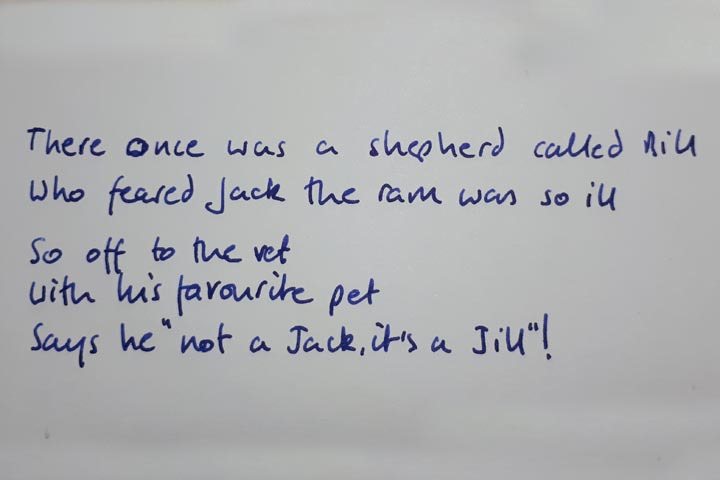 There once was a shepherd called Bill
Who feared Jack the ram was so ill
So off to the vet
with his favourite pet
Says he "not a Jack, it's a Jill"!